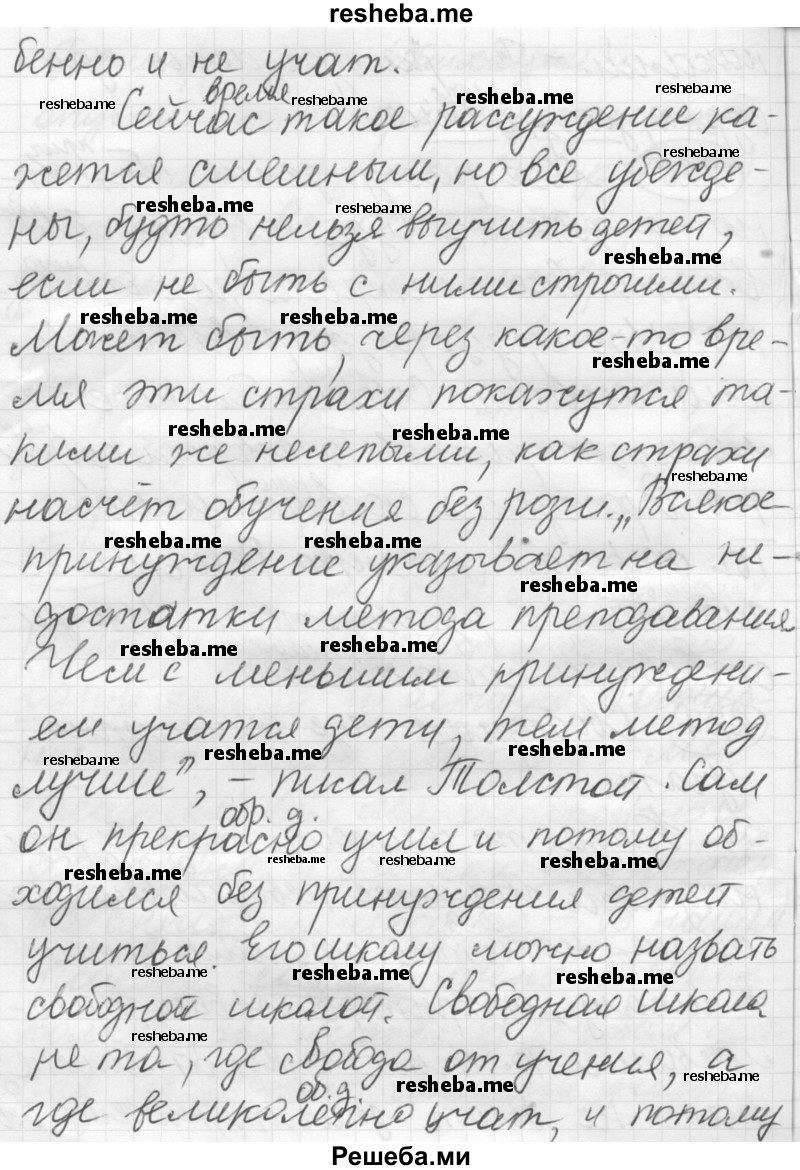 resheba.me
бенно и не учат.
время
resheba.me resheba.me resheba.me resheba.me
Сейчас такое рассуждение ка-
resheba.me
жется смешным, но все убежде-
resheba.me resheba.me
ны, будто нельзя выучить детей,
resheba.me
если не быть с ними строгими.
resheba.me resheba.me
Может быть, через какое-то вре-
resheba.me
мя эти страхи покажутся та-
resheba.me resheba.me
кими же нелепыми, как страхи
resheba.me
насчёт обучения без розги. „Всякое
resheba.me resheba.me
принуждение указывает на не-
resheba.me
достатки метода преподавания.
resheba.me resheba.me
Чем с меньшим принуждени-
ем учатся дети, тем метод
resheba.me resheba.me resheba.me
лучше", – писал Толстой. Сам
обр. д.
он прекрасно учил и потому об-
resheba.me resheba.me resheba.me resheba.me
ходился без принуждения детей
учиться. Его школу можно назвать
resheba.me resheba.me resheba.me
свободной школой. Свободная школа
resheba.me
не та, где свобода от учения, а
об. д. resheba.me resheba.me
где великолепно учат, и потому
Решеба.ми